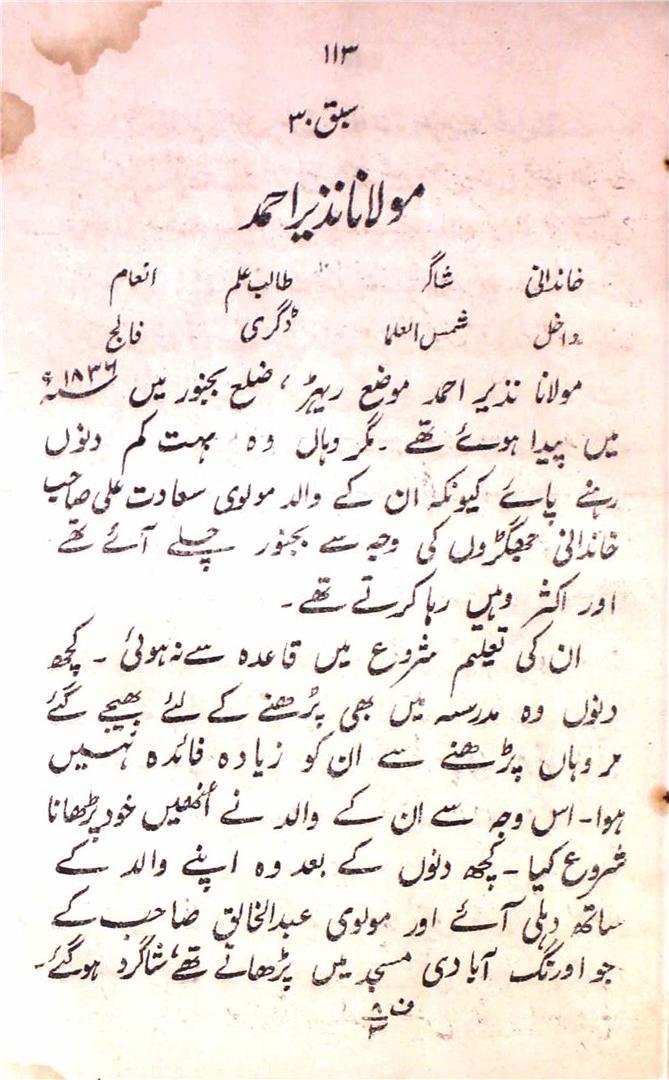 ۱۱۳
سبق ۳۰
مولانا نذیر احمد
خاندانی شاگر طالب علم انعام
داخل شمس العلما ڈگری فالج
مولانا نذیر احمد موضع ریہڑ، ضلع بجنور میں ۱۸۳۶ء
میں پیدا ہوئے تھے ۔ مگر وہاں وہ بہت کم دنوں
رہنے پائے کیونکہ ان کے والد مولوی سعادت علی صاحب
خاندانی جھگڑوں کی وجہ سے بجنور چلے آئے تھے
اور اکثر وہیں رہا کرتے تھے ۔
ان کی تعلیم شروع میں قاعدہ سے نہ ہوئی ۔ کچھ
دنوں وہ مدرسہ میں بھی پڑھنے کے لئے بھیجے گئے
مر وہاں پڑھنے سے ان کو زیادہ فائدہ نہیں
ہوا ۔ اس وجہ سے ان کے والد نے اُنھیں خود پڑھانا
شروع کیا ۔ کچھ دنوں کے بعد وہ اپنے والد کے
ساتھ دہلی آئے اور مولوی عبدالخالق صاحب کے
جو اورنگ آبادی مسجد میں پڑھاتے تھے، شاگرد ہوگئے ۔